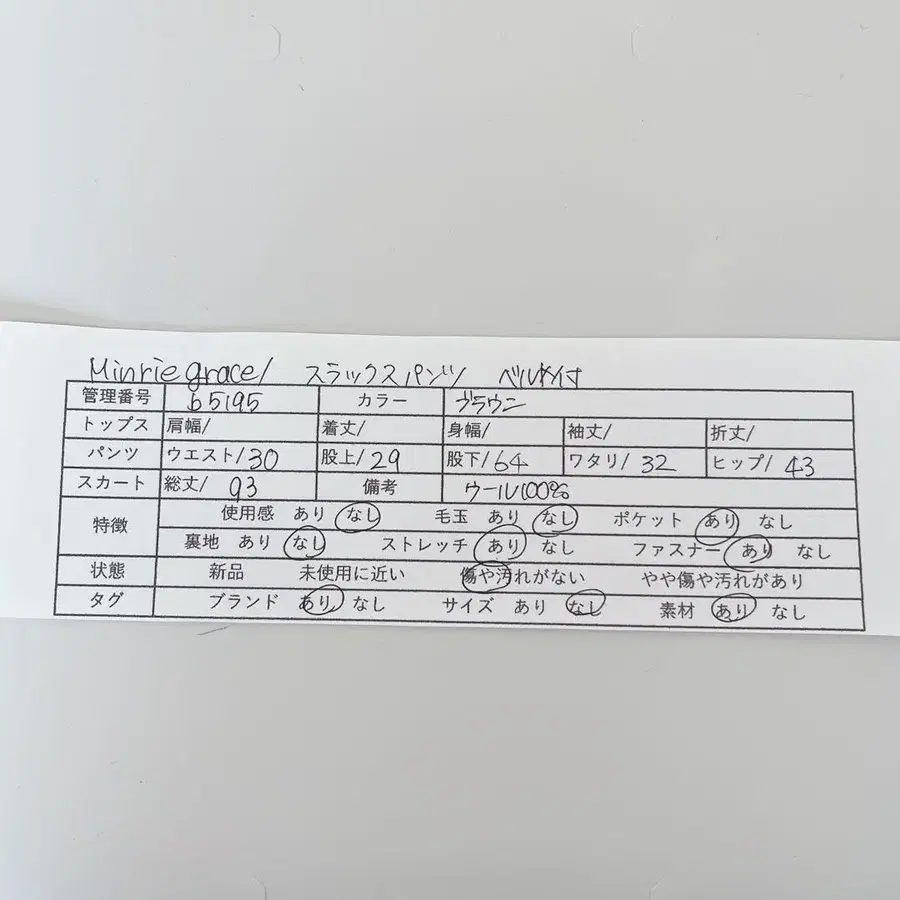 Minrie grace/ スラックスパンツ ベルト付
管理番号 b5195 カラー ブラウン
トップス 肩幅/ 着丈/ 身幅/ 袖丈/ 裄丈/
パンツ ウエスト/30 股上/29 股下/64 ワタリ/32 ヒップ/43
スカート 総丈/93 備考 ウール100%
特徴 使用感 あり なし 毛玉 あり なし ポケット あり なし
裏地 あり なし ストレッチ あり なし ファスナー あり なし
状態 新品 未使用に近い 傷や汚れがない やや傷や汚れがあり
タグ ブランド あり なし サイズ あり なし 素材 あり なし